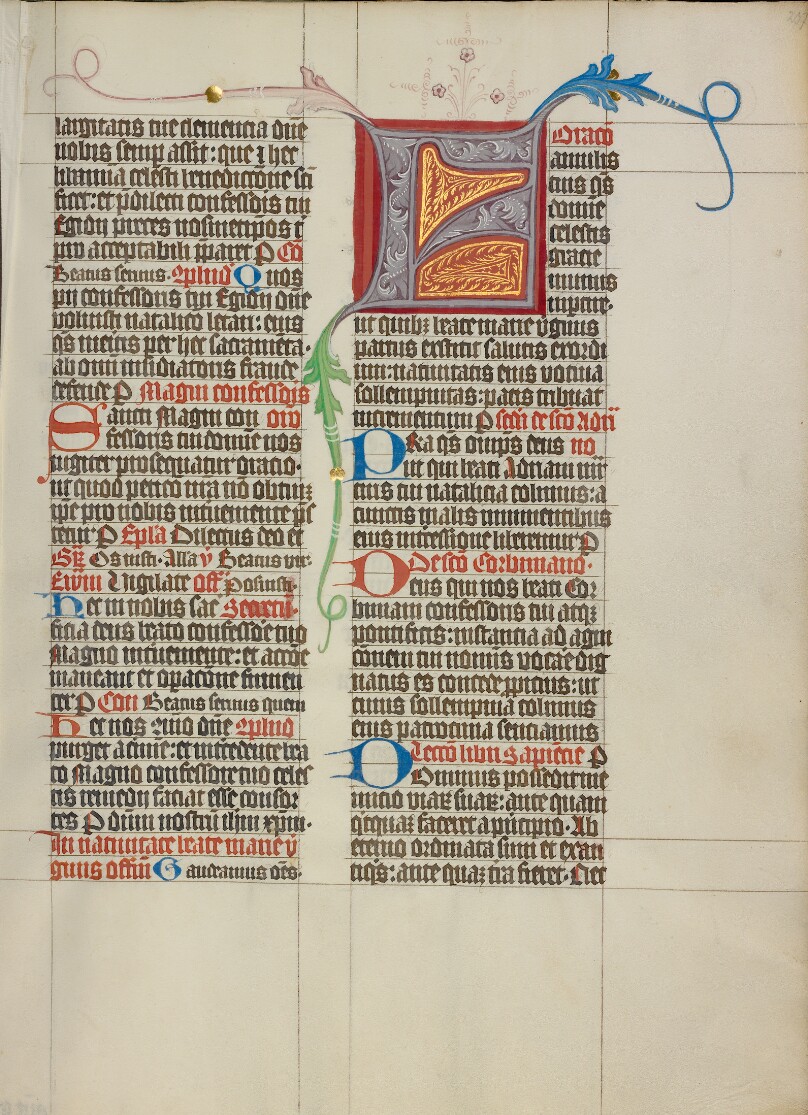 largitatis tue clementia dñe
nobis semp assit: que ⁊ hec
libamina celesti benedictiõne sci
ficet: et ꝑ dilecti confessoris tui
Egidij preces nosmetip̃os t
pro acceptabili p̃paret P Cõ
Beatus seruus. 9plnd̃ Quos
pij confessoris tui Egidij dñe
voluisti natalicio letari: eius
q̃s meritis per hec sacramẽta.
ab omni insidiatoris fraude
defende P Magni confessoris
Sancti Magni con oro
fessoris tui domine nos
iugiter prosequatur oratio.
ut quod peticõ nr̃a nõ obtinet
ip̃e pro nobis interueniente p̃s
tetur P Epl̃a Dilectus deo et
Gr̃ Os iusti. All̃a v̾ Beatus vir.
Ewm̃ Vigilate off̃ Posuisti.
Hec in nobis sac̃ Secreta.
ficia deus beato confessõe tuo
Magno interueniente: et accõe
maneant et opacõne firmen
tur P Cõm Beatus seruus quem
Hec nos 9mõ dñe 9plnd̃
purget a crimine: et intercedente bea
to Magno confessore tuo celes
tis remedij faciat esse consor
tes P dñm nostrũ ihm xp̃m.
In natiuitate beate marie v̾
ginis offm̃ Gaudeamus oẽs.
Oracõ
Famulis
tuis q̃s
domine
celestis
gracie
munus
inptire.
ut quibꝫ beate marie v̾ginis
partus exstitit salutis exordi
um: natiuitatis eius votiua
sollempnitas: pacis tribuat
incrementum P sctĩ de sctõ Adri
Pra q̃s omps deus no
ut qui beati Adriani mr̃
tiris tui natalicia colimus: a
cunctis malis imminentibus
eius intercessione liberemur P
De sctõ Corbiniano.
Deus qui nos beati Cor
biniani confessoris tui atqꝫ
pontificis: instantia ad agni
cõnem tui nominis vocãe dig
natus es concede ꝓpicius: ut
cuius sollempnia colimus
eius patrocinia senciamus
Lectõ libri Sapiẽcie P
Dominus possedit me
inicio viaꝝ suaꝝ: ante quam
qicquã faceret a principio. Ab
eterno ordinata sum et exan
tiqs: ante quã tr̃a fieret. Nec